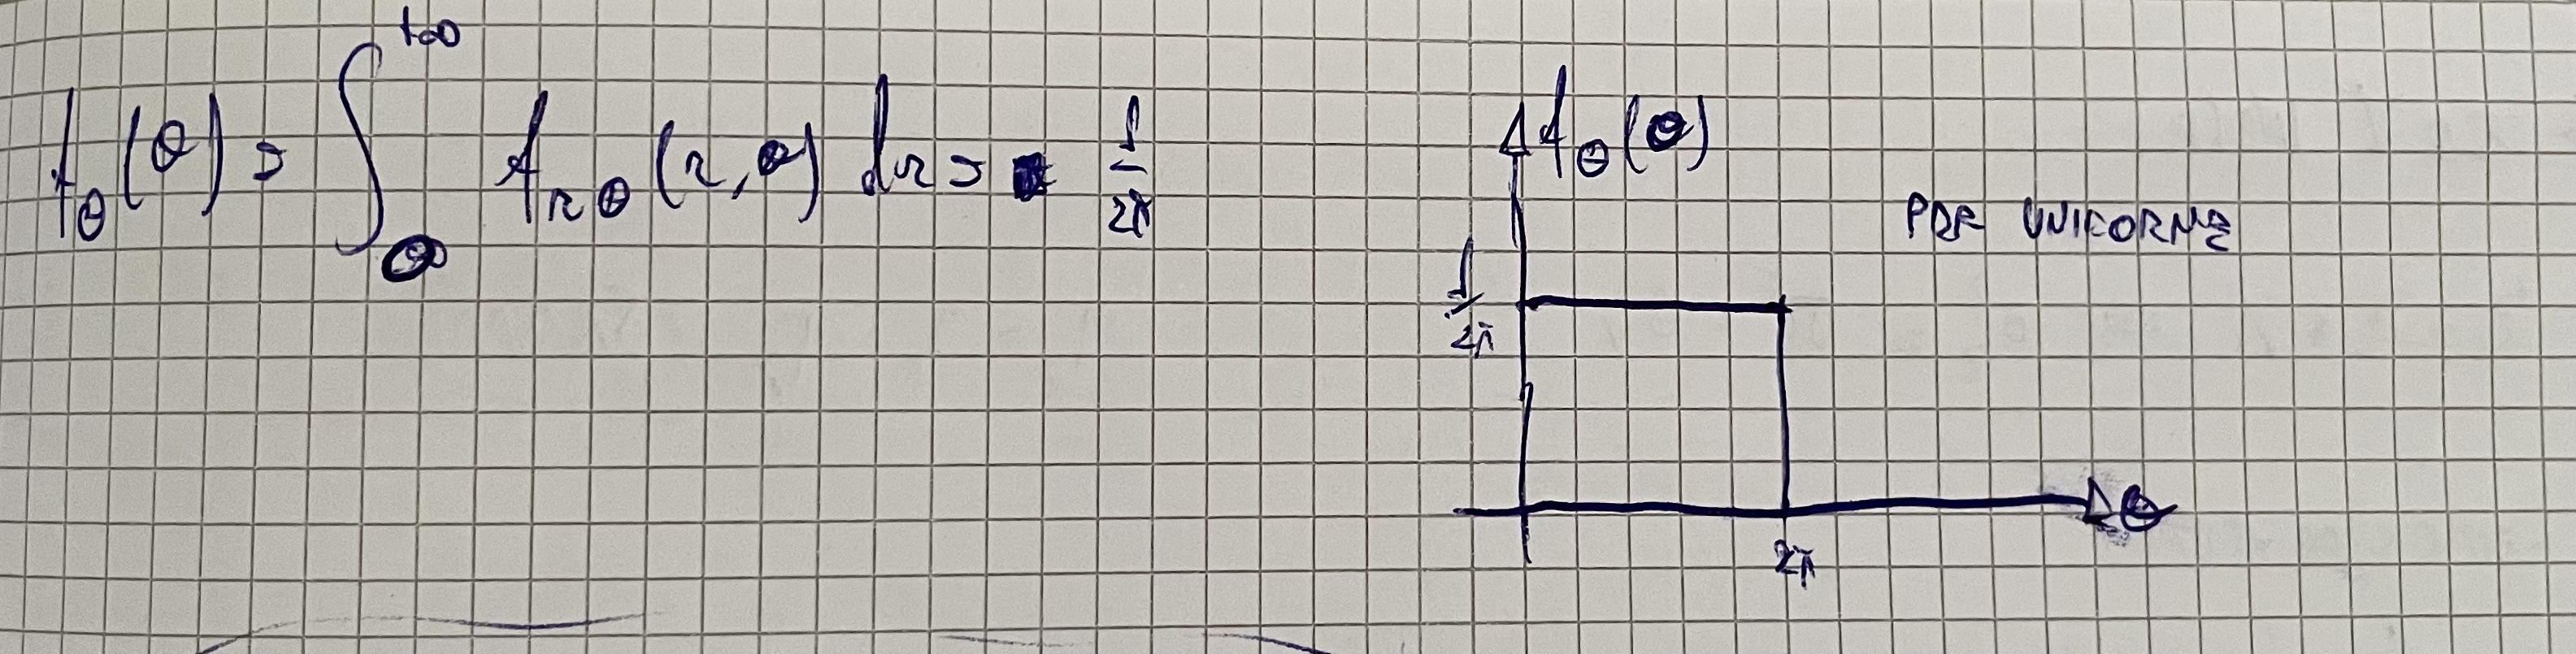 f_Θ(θ) = ∫_0^{+∞} f_{RΘ}(r,θ) dr = 1/2π
f_Θ(θ)
PDF UNIFORME
1/2π
2π
θ